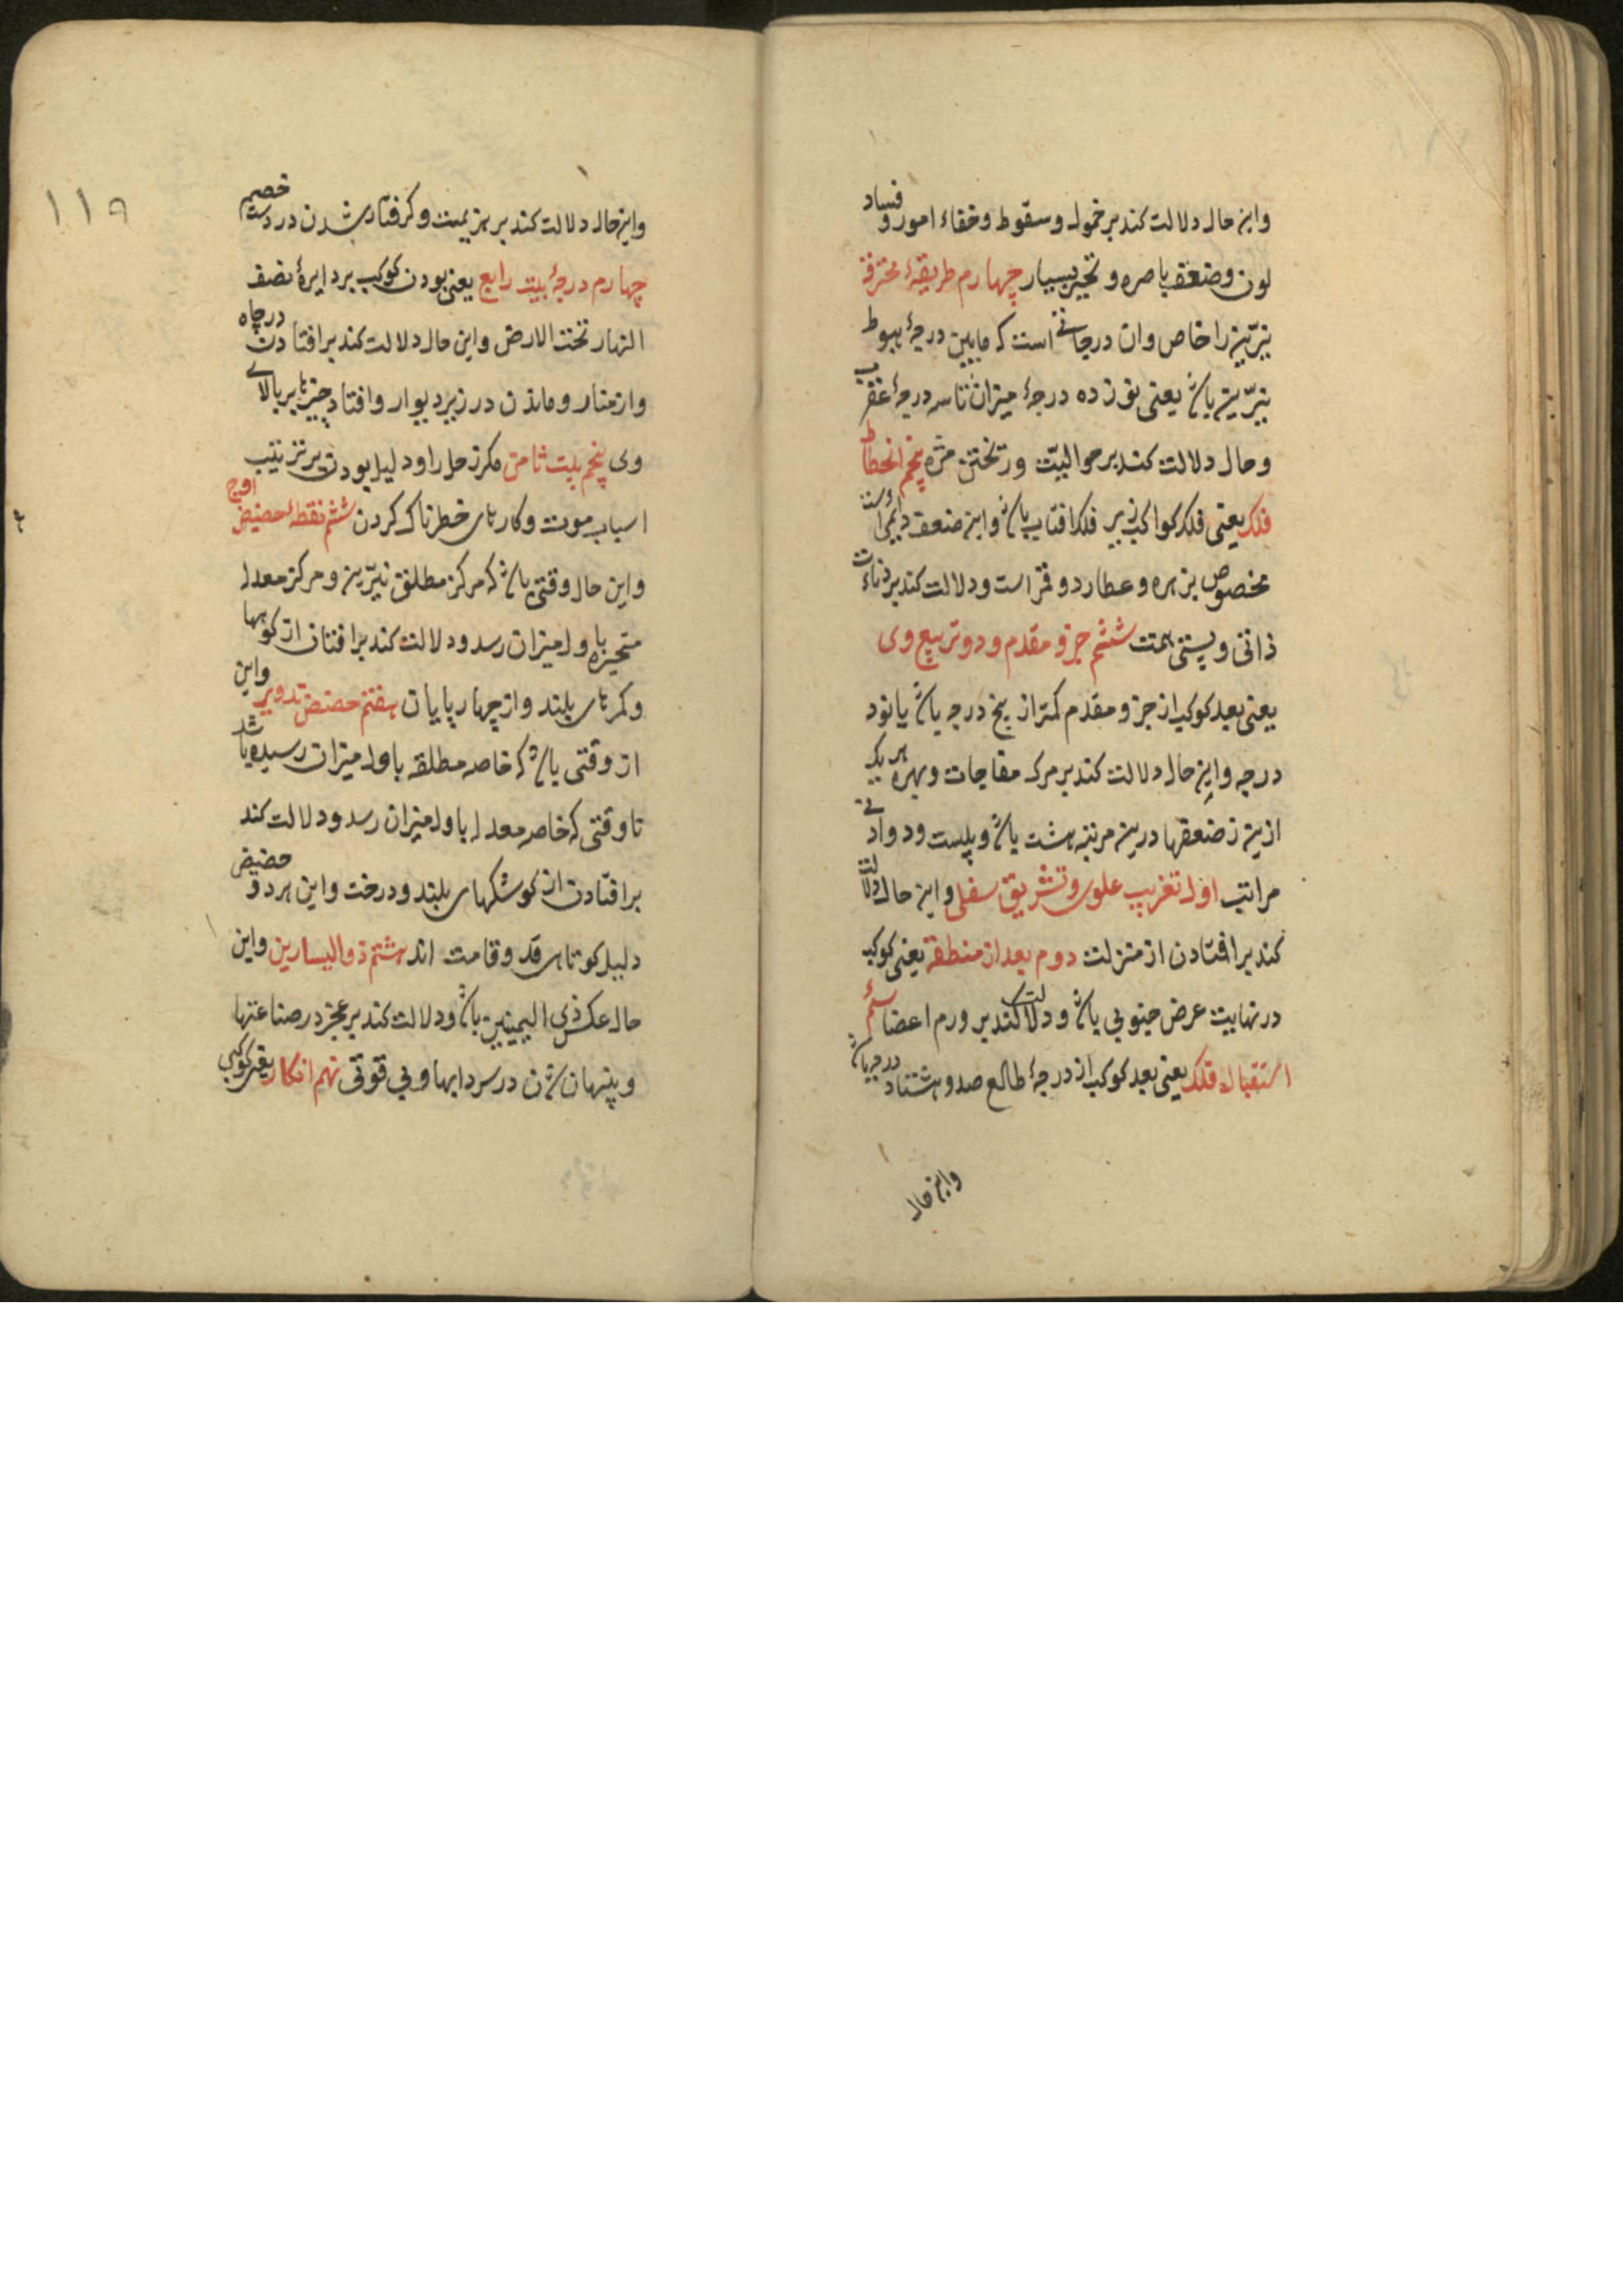 واین حال دلالت کند بر خمول و سقوط و خفاء امور و فساد
لون و ضعف باصره و تحیر بسیار چهارم طریقهٔ محترقه
نیّرین را خاص وان درجاتی است که مابین درجهٔ هبوط
نیّرین باشد یعنی نوزده درجهٔ میزان تا سه درجهٔ عقرب
وحال دلالت کند بر حوالبیّت و ریختن مژه پنجم انحطاط
فلک یعنی فلک کواکبی زیر فلک افتاب باشد واین ضعف دایمی است
مخصوص بزهره و عطارد و قمر است ودلالت کند بر دناءت
ذاتی و پستی همت ششم جزو مقدم و دو تربیع وی
یعنی بعد کوکب از جزو مقدم کمتر از پنج درجه باشد یا نود
درجه واین حال دلالت کند بر مرک مفاجات وبهره هر یک
ازین ضعفها درین مرتبه هشت باشد و بیست ودو ادنی
مراتب اول تغریب علوی و تشریق سفلی واین حال دلالت
کند بر افتادن از منزلت دوم بعد از منطقه یعنی کوکب
در نهایت عرض جنوبی باشد و دلالت کند بر ورم اعضا سیّم
استقبال فلک یعنی بعد کوکب از درجهٔ طالع صد و هشتاد درجه باشد
واین حال
١١٩
واین حال دلالت کند بر هزیمت و کرفتار شدن در دست خصم
چهارم درجهٔ بیت رابع یعنی بودن کوکب بر دایرهٔ نصف
النهار تحت الارض واین حال دلالت کند بر افتادن در چاه
واز منار و ماندن در زیر دیوار وافتادن چیزها بر بالای
وی پنجم بیت ثامن مکر زحل را و دلیل بودن بر ترتیب
اسباب موت وکارهای خطرناک کردن ششم نقطهٔ حضیض اوج
واین حال وقتی باشد که مرکز مطلق نیّرین و مرکز معدل
متحیزه باول میزان رسد ودلالت کند بر افتادن از کوهها
وکمرهای بلند واز چهار پایان هفتم حضیض تدویر واین
از وقتی باشد که خاصه مطلقه باول میزان رسیده باشد
تا وقتی که خاصه معدل باول میزان رسد ودلالت کند
بر افتادن از کوشکهای بلند و درخت واین هر دو حضیض
دلیل کوتاهی قد و قامت اند هشتم ذوالیسارین واین
حال عکس ذی الیمینین باشد ودلالت کند بر عجز در صناعتها
و پنهان شدن در سردابها وبی قوتی نهم انکار یعنی کوکبی